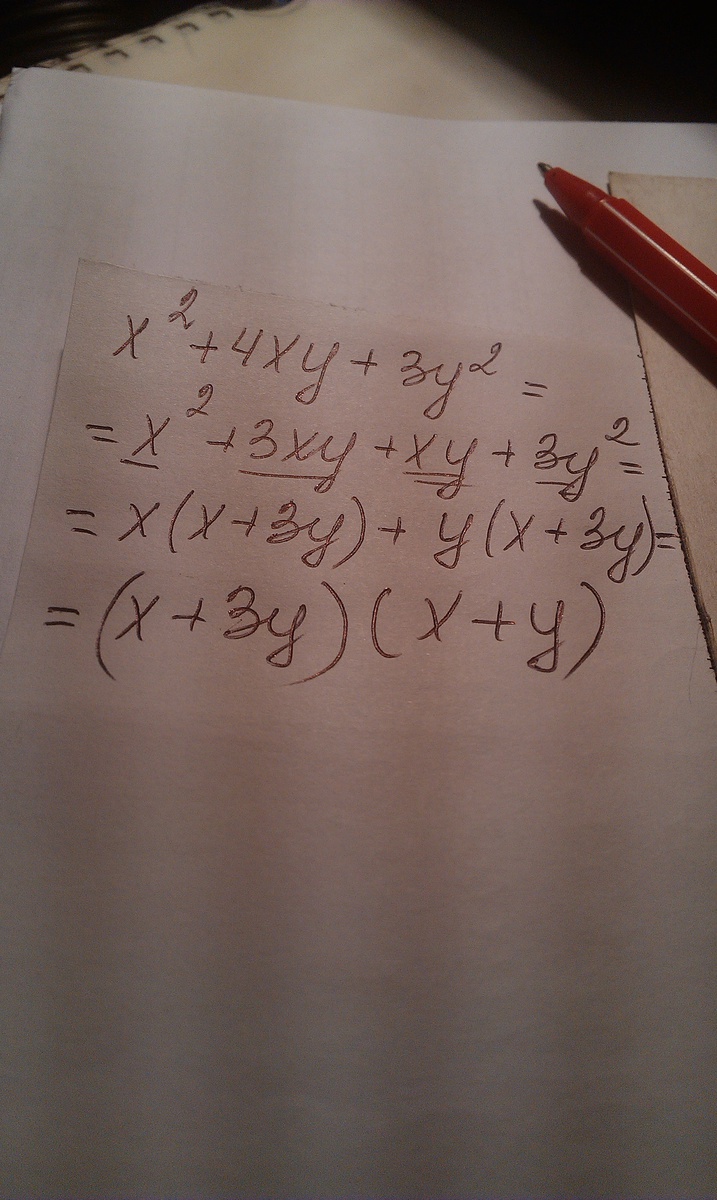 x² + 4xy + 3y² =
= x² + 3xy + xy + 3y² =
= x(x + 3y) + y(x + 3y) =
= (x + 3y)(x + y)